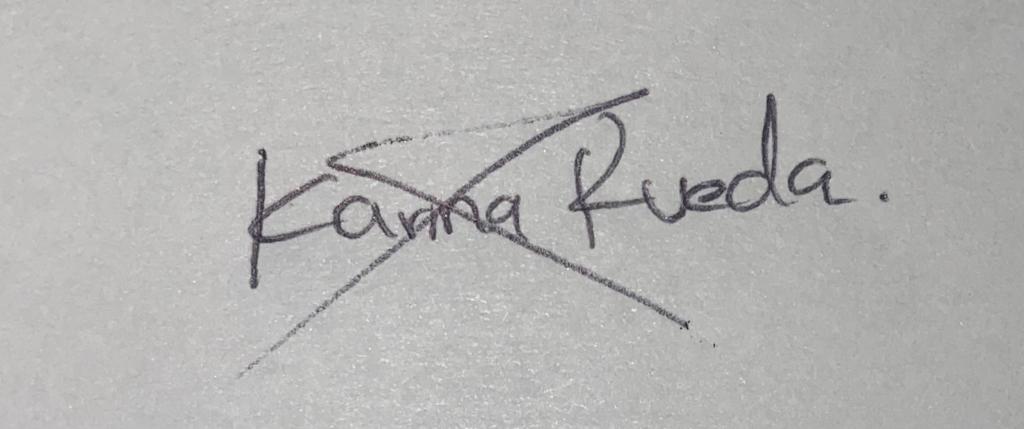 Karina Rueda.